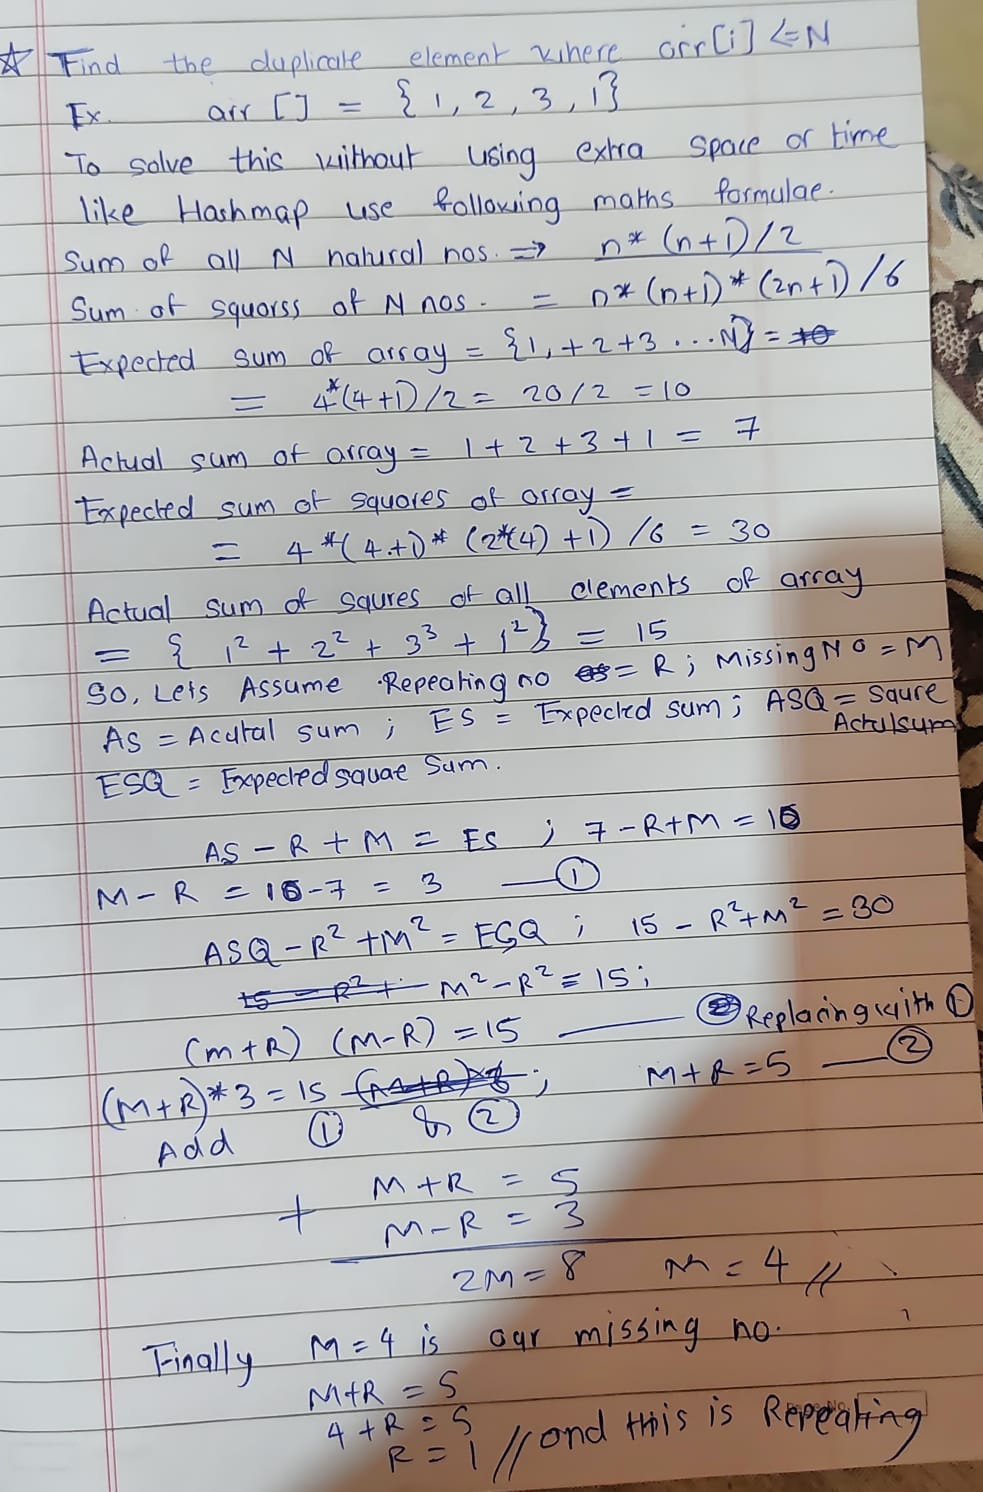 ☆ Find the duplicate element where arr[i] <=N
Ex. arr [] = { 1, 2, 3, 1}
To solve this without using extra space or time
like Hashmap use following maths formulae.
Sum of all N natural nos. => n* (n+1)/2
Sum of squarss of N nos. = n* (n+1)* (2n+1)/6
Expected sum of array = {1, +2+3 ...N} = 10
= 4*(4+1)/2 = 20/2 = 10
Actual sum of array = 1+2+3+1 = 7
Expected sum of squares of array =
= 4*(4+1)* (2*(4)+1) /6 = 30
Actual sum of squres of all elements of array
= { 1² + 2² + 3³ + 1²} = 15
So, Lets Assume Repeating no = R; Missing No = M
AS = Acutal sum ; ES = Expected sum ; ASQ = Saure
Actulsum
ESQ = Expected squae Sum.
AS - R + M = ES ; 7 - R+M = 10
M - R = 10-7 = 3 — ①
ASQ - R² + M² = ESQ ; 15 - R²+M² = 30
15 - R² + M² - R² = 15;
(m+R) (M-R) = 15 — ② Replacing with ①
(M+R)*3 = 15 ; M+R = 5 — ②
Add ① & ②
M+R = 5
+ M-R = 3
2M = 8 M = 4 //
Finally M=4 is our missing no.
M+R = 5
4+R = 5
R = 1 // and this is Repeating